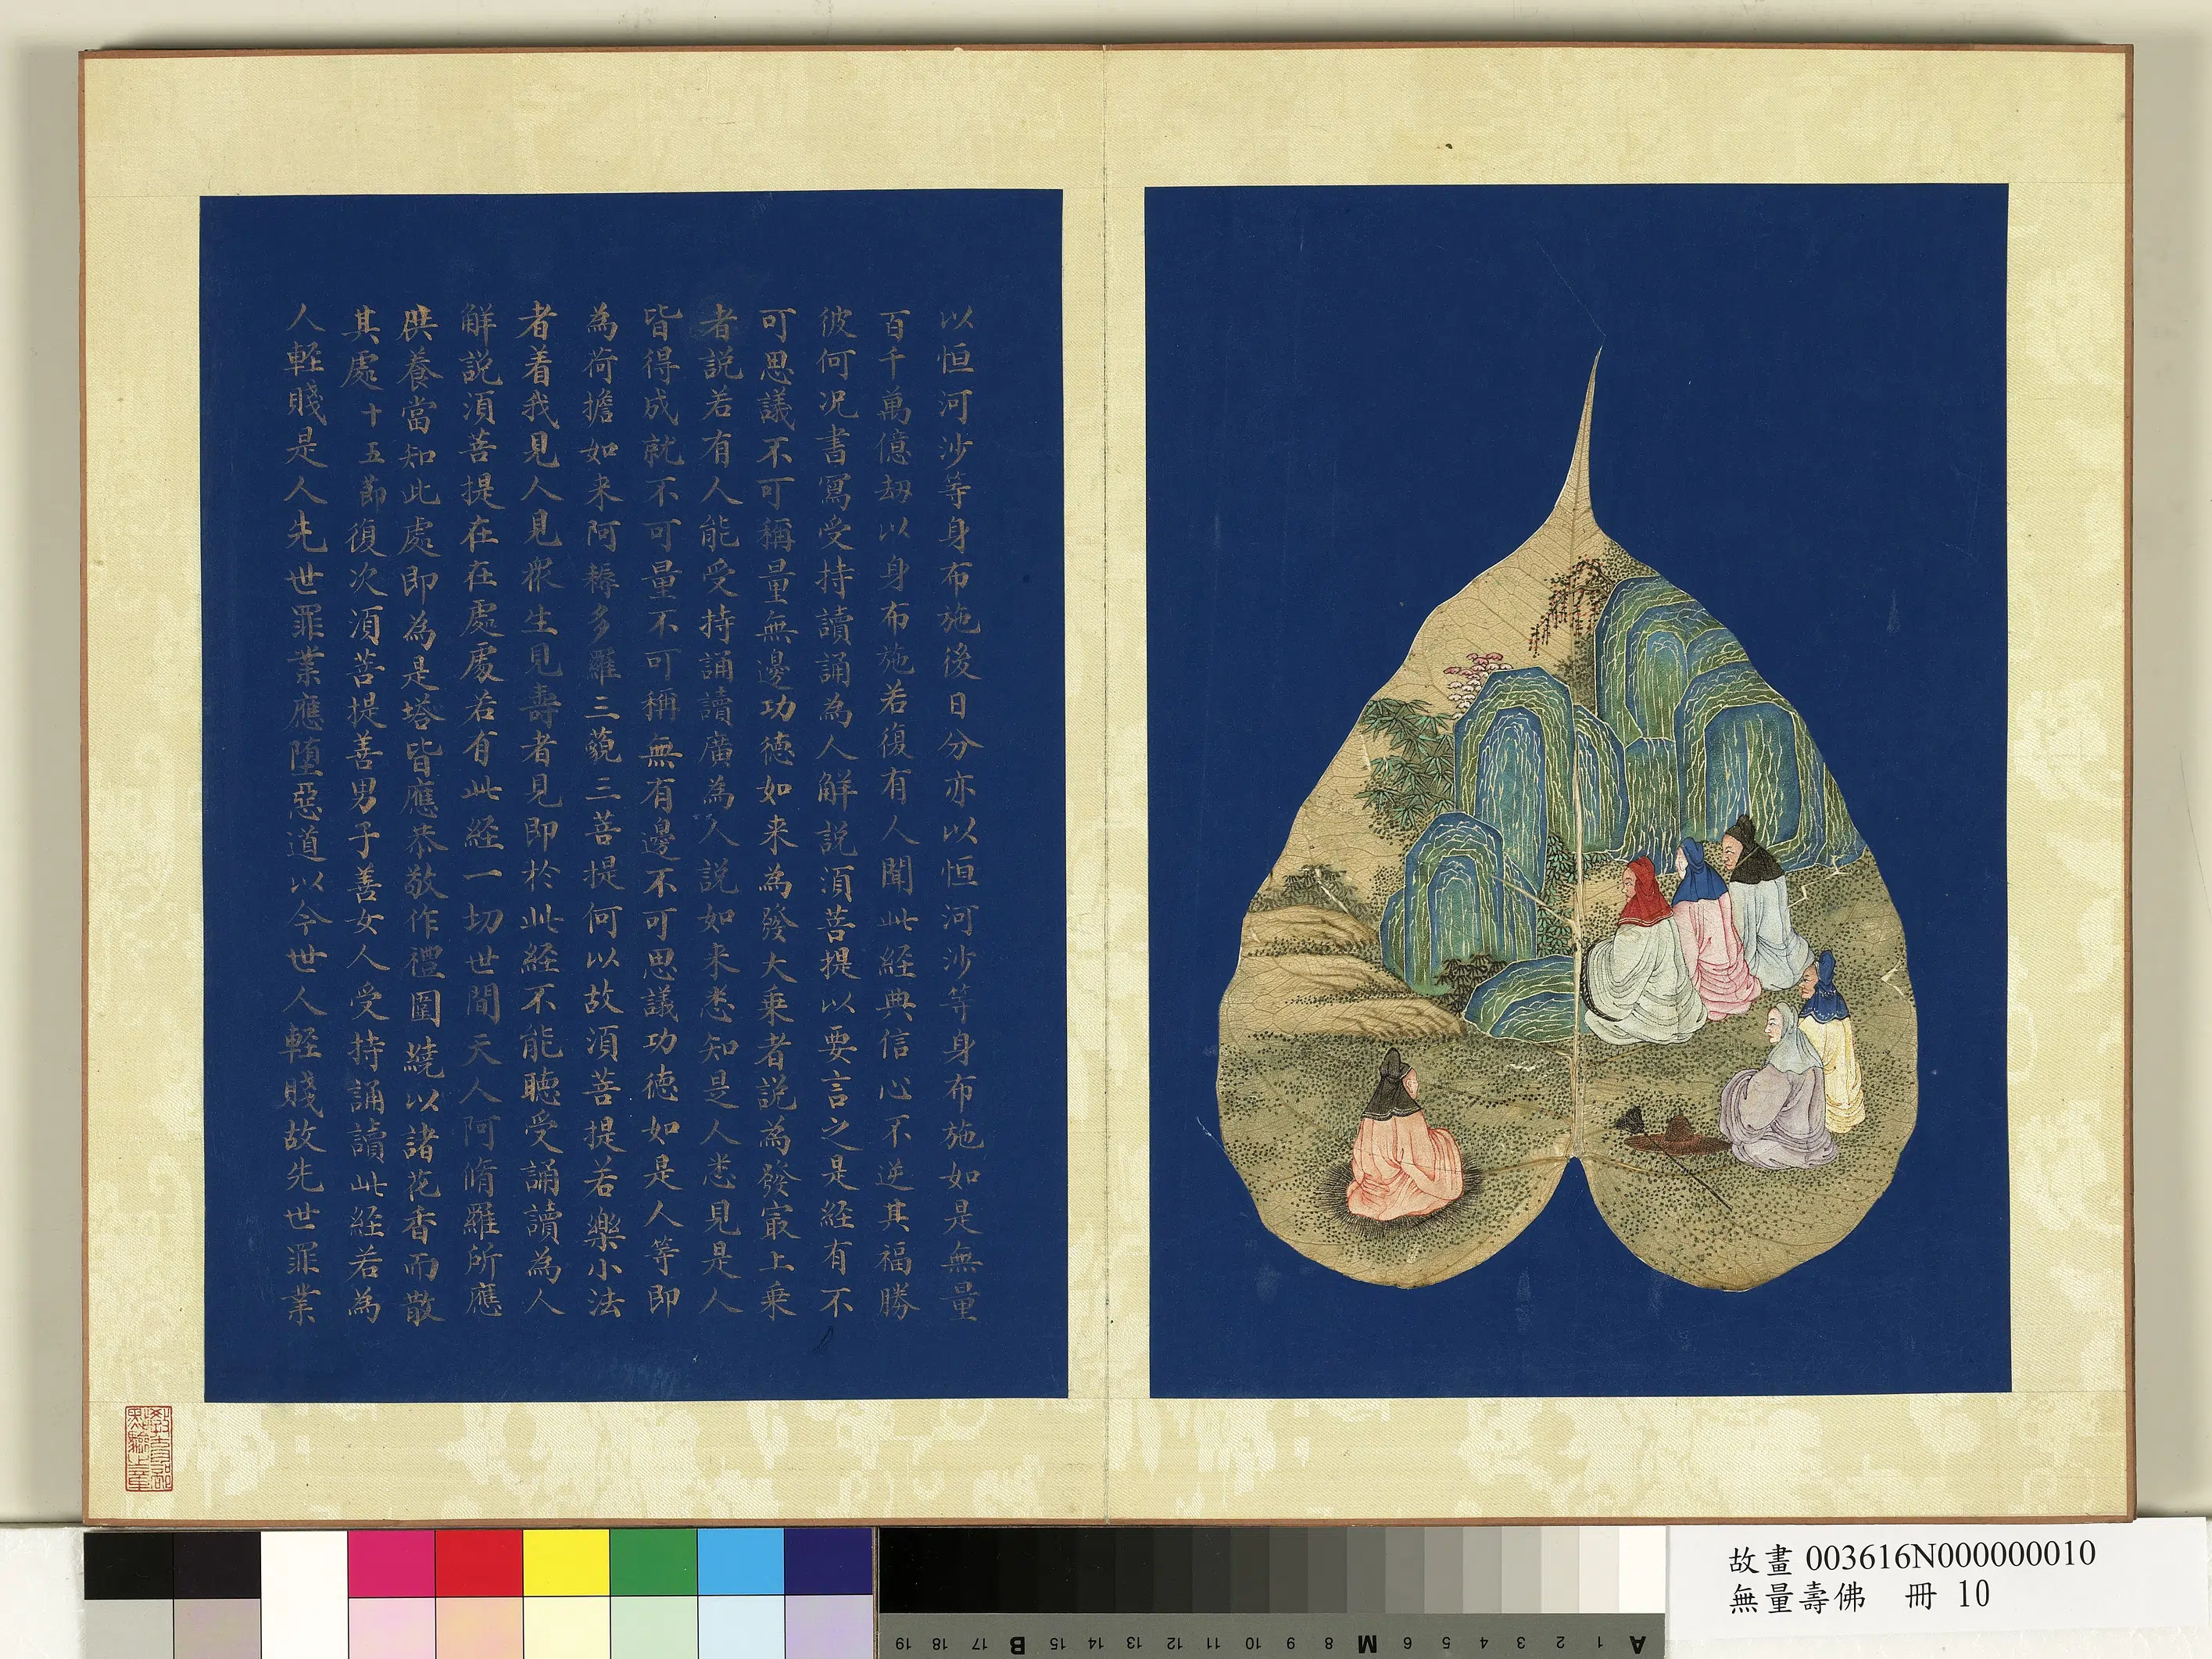 以恒河沙等身布施後日分亦以恒河沙等身布施如是無量
百千萬億劫以身布施若復有人聞此経典信心不逆其福勝
彼何况書寫受持讀誦為人解説湏菩提以要言之是経有不
可思議不可稱量無邊功德如来為發大乗者説為發㝡上乗
者説若有人能受持誦讀廣為人説如来悉知是人悉見是人
皆得成就不可量不可稱無有邊不可思議功德如是人等即
為荷擔如来阿耨多羅三藐三菩提何以故湏菩提若樂小法
者着我見人見眾生見壽者見即於此経不能聴受誦讀為人
解説湏菩提在在處處若有此経一切世間天人阿脩羅所應
供養當知此處即為是塔皆應恭敬作禮圍繞以諸花香而散
其處十五節復次湏菩提善男子善女人受持誦讀此経若為
人輕賤是人先世罪業應堕惡道以今世人輕賤故先世罪業
教育部
點驗之章
故畫 003616N000000010
無量壽佛 冊 10
A 1 2 3 4 5 6 M 8 9 10 11 12 13 14 15 B 17 18 19